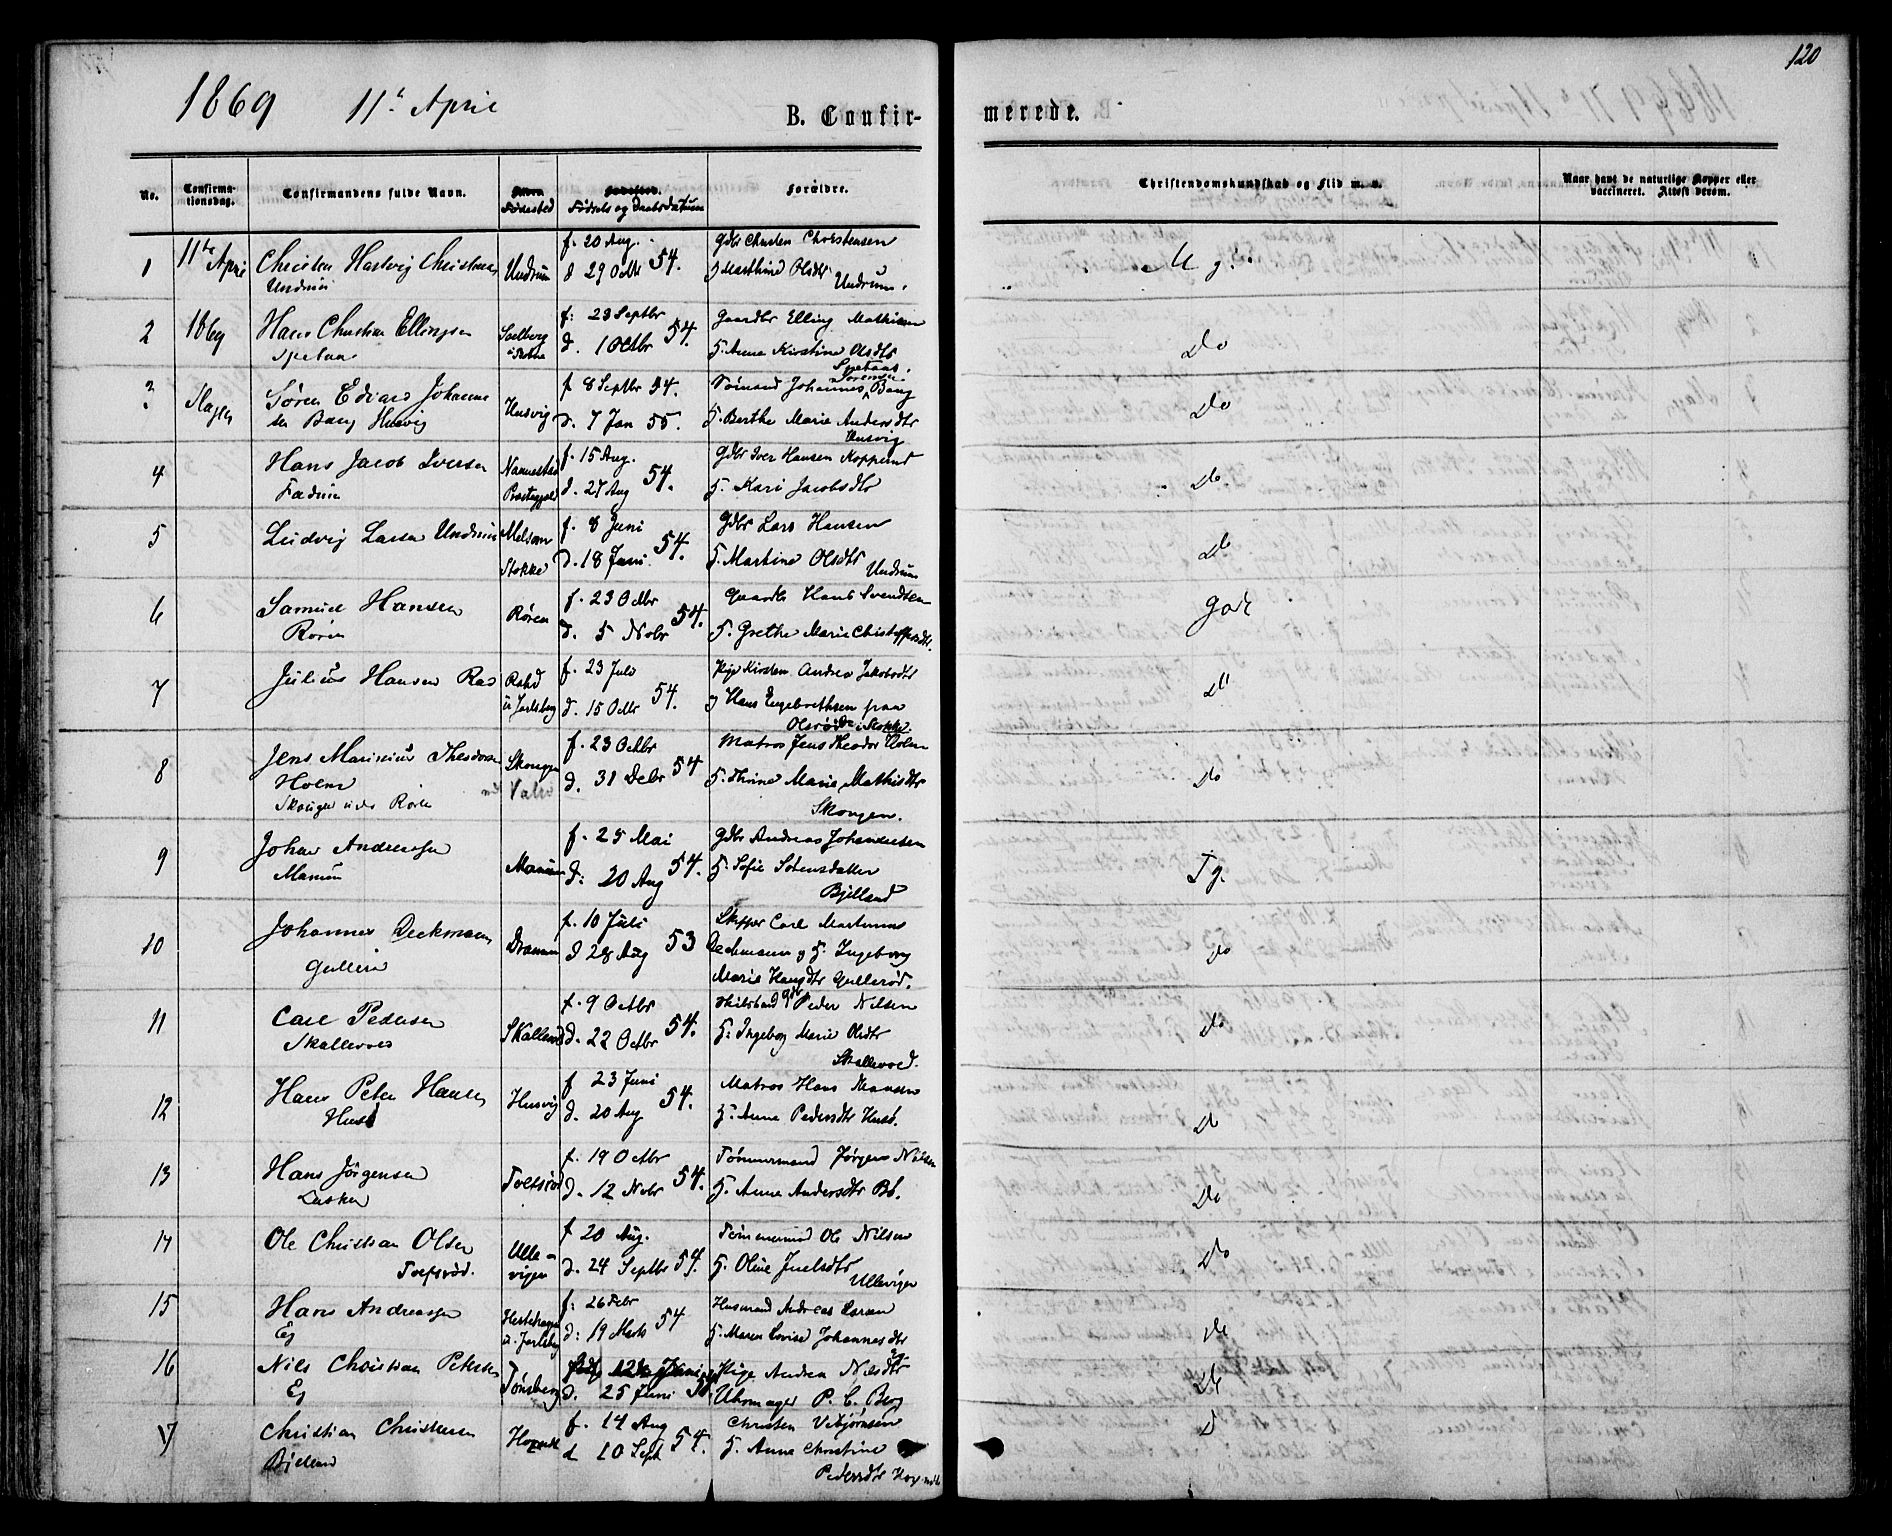 120
1869 11te April
B. Confirmerede.
No. Confirmationsdag. Confirmandens fulde Navn. Alder Fødested Fødested. Fødsels og Daabsdatum Forældre. Christendomskundskab og Flid m. v. Naar havt de naturlige Kopper eller vaccineret. Attest derom.
1 11te April Christen Hartvig Christensen Undrum f. 20 Aug. Gdbr Christen Chorstensen M g.
Undrum d 29 Octbr 54. g Marthine Olsdtr
Undrum.
2 1869 Hans Christian Ellingsen Solberg f: 23 Septbr Gaardbr Elling Mathisen Do
i Stokke d. 1 Octbr 54. H. Anne Kirstine Olsdtr
3 Slagen Søren Edvard Johanne Husvig f 8 Septbr 54. Sømand Johannes Sørensen Bang Do
sen Bang Husvig d. 7 Jan 55. H. Berthe Marie Andersdtr
Husvig
4 Hans Jacob Iversen Nannestad f. 15 Aug. Gdbr Iver Hansen Do
Prestegjeld d. 27 Aug 54. H. Kari Jacobsdtr
5 Ludvig Larsen Undrum Melsom f. 8 Juni Gdbr Lars Hansen Do
Stokke d. 18 Juni 54. H. Martine Olsdtr
Undrum
6 Samuel Hansen Røren f. 23 Octbr Gaardbr Hans Svendsen God
Røren d. 5 Nobr 54. H. Grethe Marie Christoffersdtr.
7 Julius Hansen Ras f. 23 Juli Pige Kirsten Andrea Jakobsdtr Do
u Jarlsberg d. 15 Octbr 54. g Hans Engebrethsen paa
i Stokke
8 Jens Marinius Theodorsen Skougen f. 23 Octbr Matros Jens Theodor Holm Do
Holm d. 31 Debr 54 H. Thrine Marie Mathisdtr
Skougen Røren Skougen.
9 Johan Andreassen f. 25 Mai Gdbr Andreas Johannesen T g.
d: 20 Aug 54. H. Sofie Sørensdatter
Bjelland
10 Johannes Deckmann Drammen f. 10 Juli Skipper Carl Martinus Do
d 28 Aug 53 Dechmann g H. Ingeborg
Marie Hansdtr Gullerød.
11 Carl Pedersen Skallevold f. 9 Octbr Gdbr Peder Nilsen Do
Skallevold d. 22 Octbr 54. H: Ingeborg Marie Olsdtr
Skallevold.
12 Hans Peter Hansen Husvig f 23 Juni Matros Hans Hansen Do
Husø d. 20 Aug 54. H. Anne Pedersdtr Husø.
13 Hans Jørgensen Tolfsrød f. 19 Octbr Tømmermand Jørgen Nilsen Do
d. 12 Nobr 54. H. Anne Andersdtr
14 Ole Christian Olsen Ulle- f 20 Aug. Tømmermand Ole Nilsen Do
Tolfsrød. vigen d. 24 Septbr 54. H. Oline Juelsdtr
Ullevigen
15 Hans Andreassen Hestehagen f: 26 Febr Husmand Andreas Larsen Do
Ej u. Jarlsberg d: 19 Marts 54 H. Maren Lovise Johannesdtr
16 Nils Christian Petersen Tønsberg 12te Juni Pige Andrea Nilsdtr g Do
Ej d. 25 Juni Uhrmager P. C. Berg
17 Christian Christensen f. 14 Aug Christen Vebjørnsen D
Bjelland d 10 Sept 54. H. Anne Christine
Pedersdtr